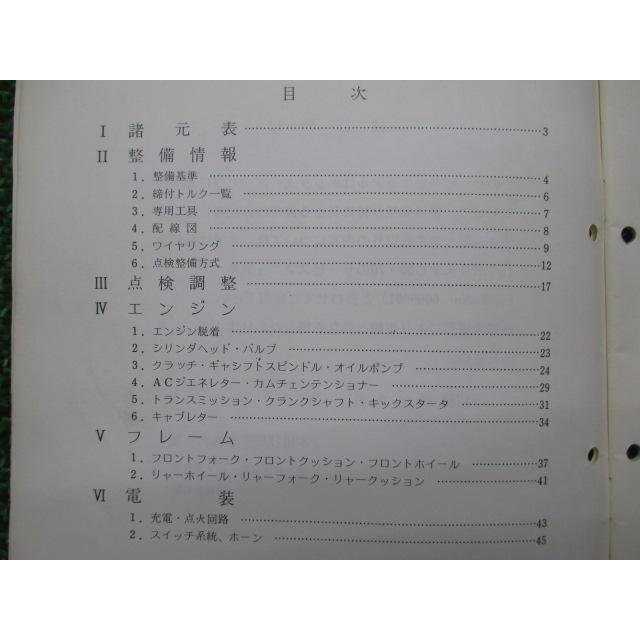 目 次
I 諸元表 3
II 整備情報
1. 整備基準 4
2. 締付トルク一覧 6
3. 専用工具 7
4. 配線図 8
5. ワイヤリング 9
6. 点検整備方式 12
III 点検調整 17
IV エンジン
1. エンジン脱着 22
2. シリンダヘッド・バルブ 23
3. クラッチ・ギャシフトスピンドル・オイルポンプ 24
4. ACジエネレター・カムチェンテンショナー 29
5. トランスミッション・クランクシャフト・キックスタータ 31
6. キャブレター 34
V フレーム
1. フロントフォーク・フロントクッション・フロントホイール 37
2. リヤーホイール・リヤーフォーク・リヤークッション 41
VI 電装
1. 充電・点火回路 43
2. スイッチ系統、ホーン 45